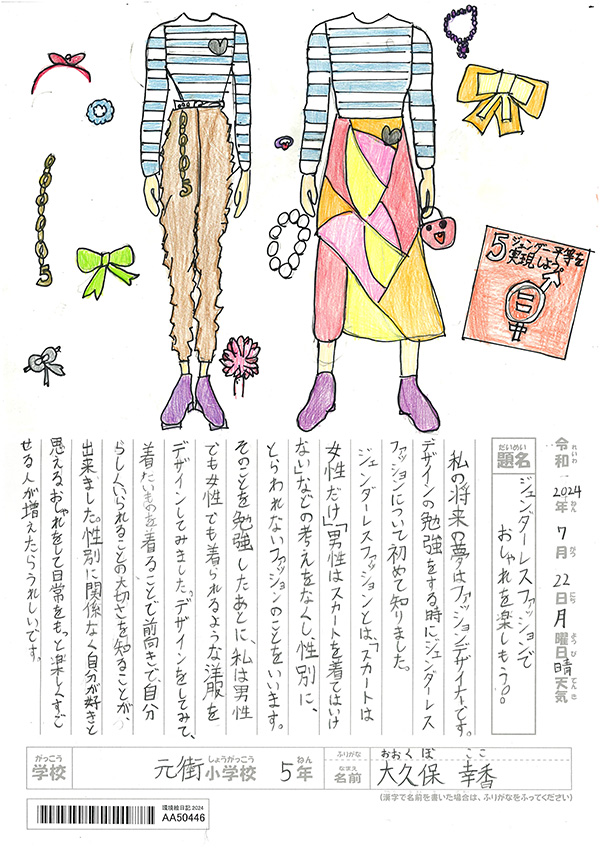 5 ジェンダー平等を
実現しよう
0005
00005
令和 2024年 7月 22日 月曜日 晴 天気
れいわ ねん がつ にち ようび てんき
だいめい
題名
ジェンダーレスファッションで
おしゃれを楽しもう。
私の将来の夢はファッションデザイナーです。
デザインの勉強をする時にジェンダーレス
ファッションについて初めて知りました。
ジェンダーレスファッションとは、「スカートは
女性だけ」「男性はスカートを着てはいけ
ない」などの考えをなくし、性別に、
とらわれないファッションのことをいいます。
そのことを勉強したあとに、私は男性
でも女性でも着られるような洋服を
デザインしてみました。デザインをしてみて、
着たいものを着ることで前向きで、自分
らしくいられることの大切さを知ることが、
出来ました。性別に関係なく自分が好きと
思えるおしゃれをして日常をもっと楽しくすご
せる人が増えたらうれしいです。
がっこう しょうがっこう ねん ふりがな おおくぼ ここ
学校 元街小学校 5年 なまえ 名前 大久保 幸香
(漢字で名前を書いた場合は、ふりがなをふってください)
環境絵日記 2024
AA50446